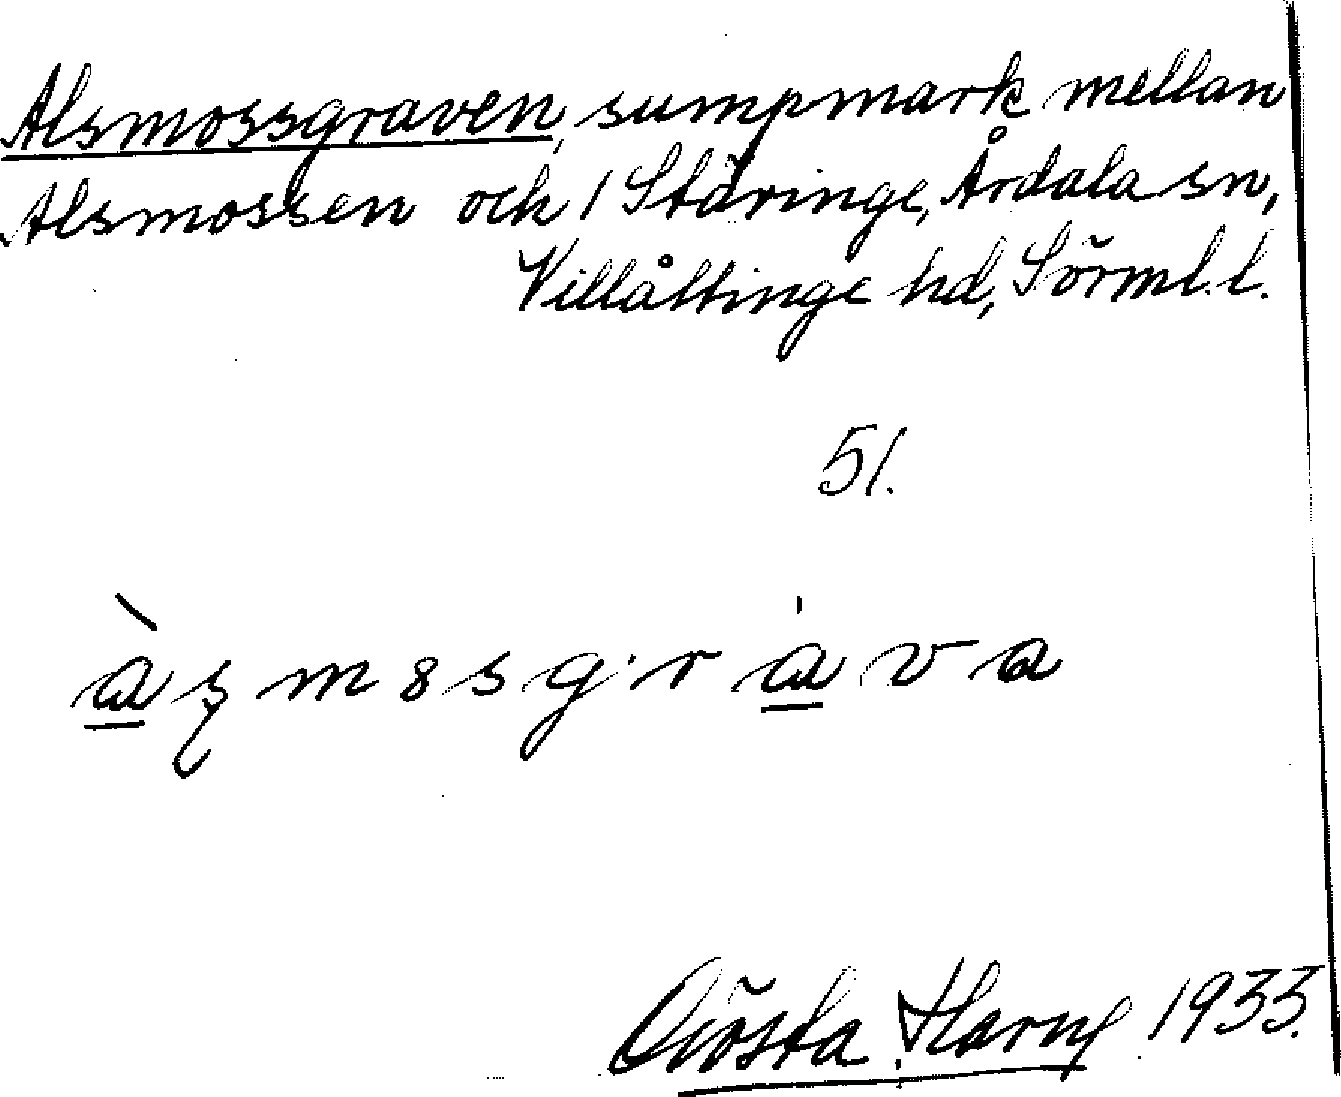 Alsmossgraven, sumpmark mellan
Alsmossen och 1 Stäringe, Årdala sn,
Villåttinge hd, Sörml. l.
51.
Gösta Harny 1933.